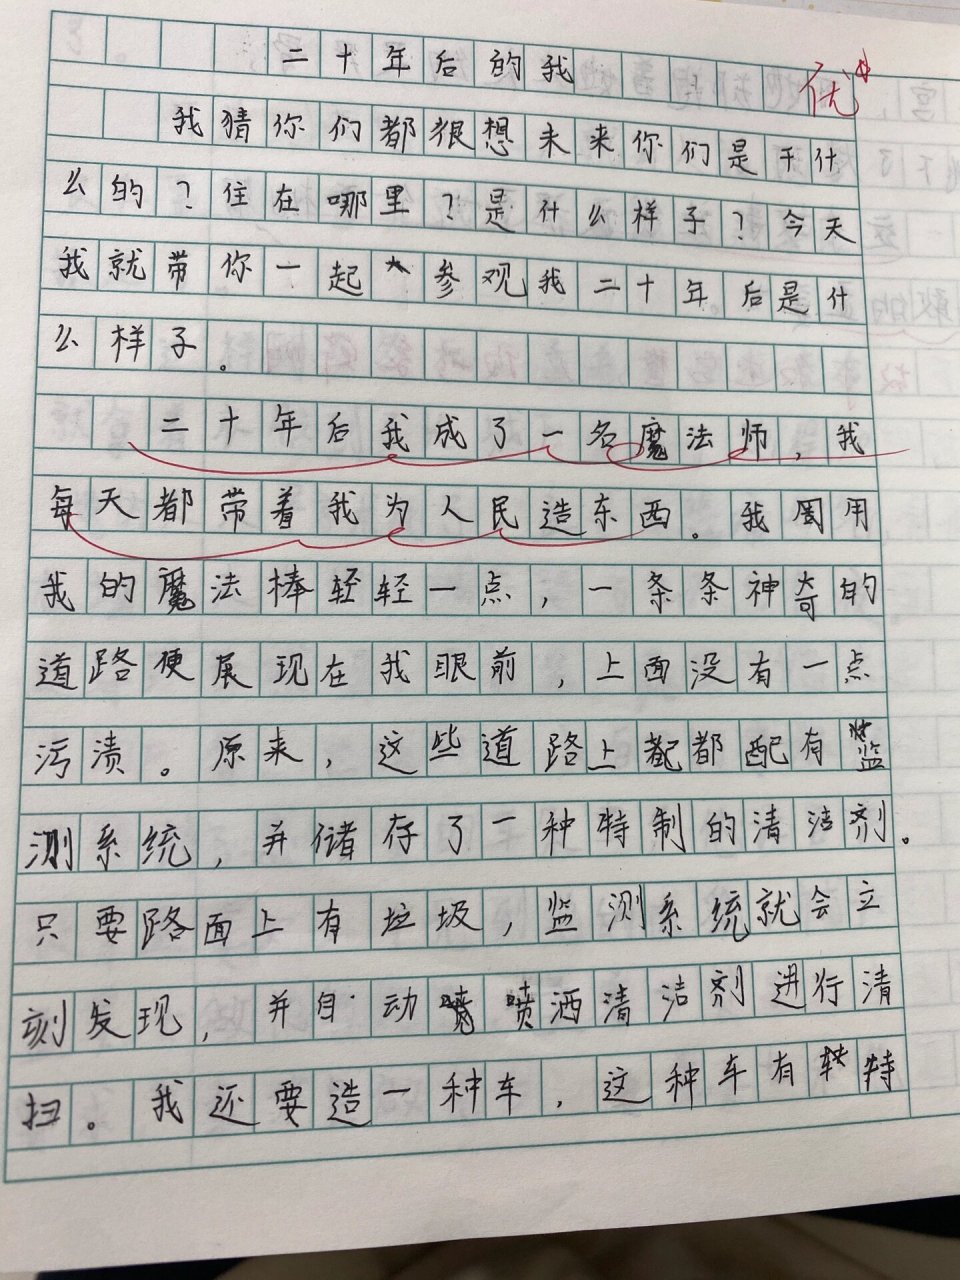 二十年后的我
优
我猜你们都狠想未来你们是干什
么的？住在哪里？是什么样子？今天
我就带你一起参观我二十年后是什
么样子。
二十年后我成了一名魔法师，我
每天都带着我为人民造东西。我周用
我的魔法棒轻轻一点，一条条神奇的
道路便展现在我眼前，上面没有一点
污渍。原来，这些道路上都配有监
测系统，并储存了一种特制的清洁剂。
只要路面上有垃圾，监测系统就会立
刻发现，并自动喷洒清洁剂进行清
扫。我还要造一种车，这种车有特